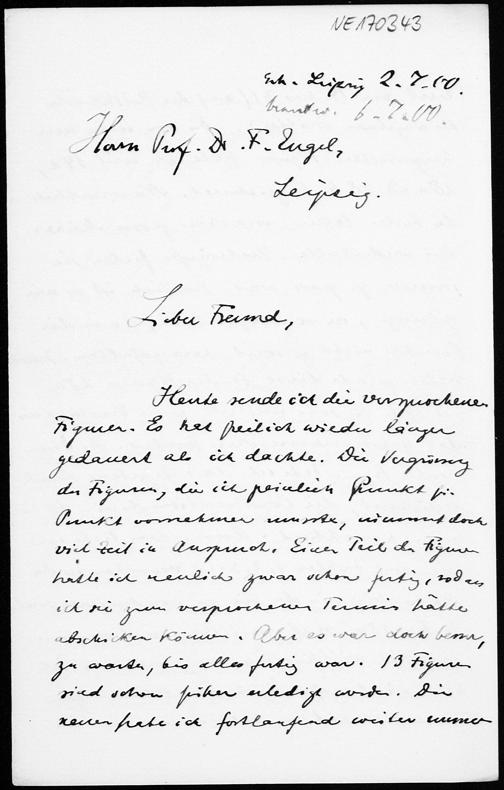 NE170343
erh. Leipzig 2-7.00.
beantw. 6-7.00.
Herrn Prof. Dr. F. Engel,
Leipzig.
Lieber Freund,
Heute sende ich die versprochenen
Figuren. Es hat freilich wieder länger
gedauert als ich dachte. Die
der Figuren, die ich peinlich Punkt f.
Punkt vornehmen musste, nimmt doch
viel Zeit in Anspruch. Einen Teil der Figuren
hatte ich neulich zwar schon fertig, sodass
ich sie zum versprochenen Termin hätte
abschicken können. Aber es war doch besser,
zu warten, bis alles fertig war. 13 Figuren
sind schon früher erledigt worden. Die
neuen habe ich fortlaufend weiter numer-